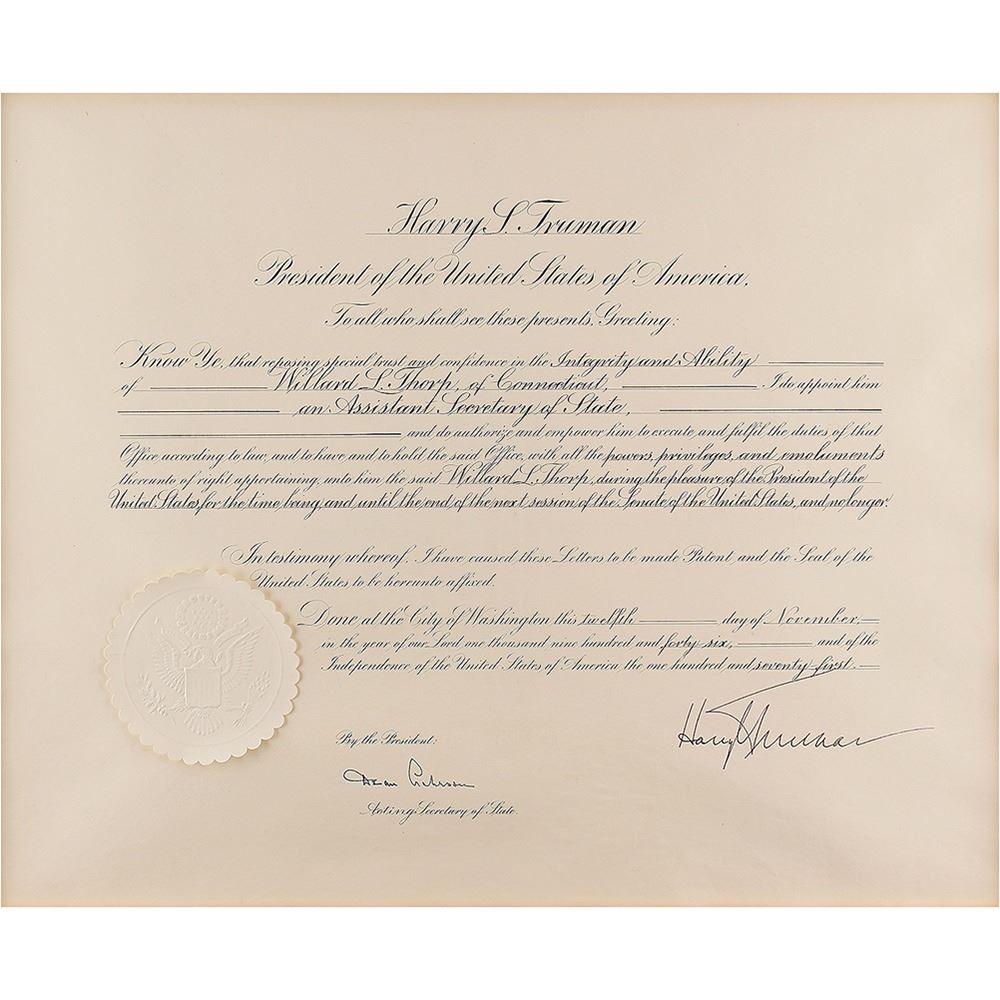 Harry S. Truman
President of the United States of America,
To all who shall see these presents, Greeting:
Know Ye, that reposing special trust and confidence in the Integrity and Ability
of Willard L. Thorp, of Connecticut, I do appoint him
an Assistant Secretary of State,
and do authorize and empower him to execute and fulfil the duties of that
Office according to law, and to have and to hold the said Office, with all the powers, privileges, and emoluments
thereunto of right appertaining, unto him the said Willard L. Thorp, during the pleasure of the President of the
United States, for the time being, and until the end of the next session of the Senate of the United States, and no longer.
In testimony whereof, I have caused these Letters to be made Patent and the Seal of the
United States to be hereunto affixed.
Done at the City of Washington this twelfth day of November,
in the year of our Lord one thousand nine hundred and forty six, and of the
Independence of the United States of America the one hundred and seventy first.
Harry S Truman
By the President:
Dean Acheson
Acting Secretary of State.